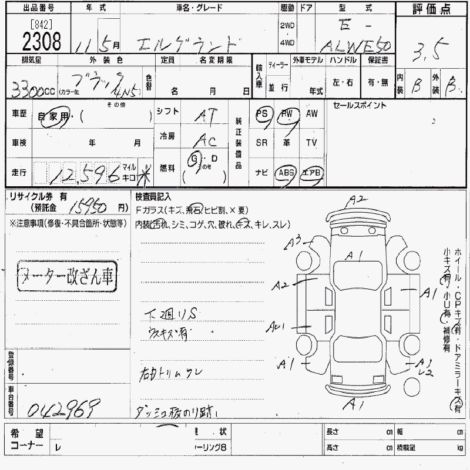 出品番号 年式 車名・グレード 駆動 ドア 型式 評価点
[842] 2WD E-
2308 11 5月 エルグランド 4WD ALWE50 3,5
排気量 外装色 色替 定員 名変期限 輸入車 ディーラー 外車モデル ハンドル 保証書 内装 外装
3300CC ブラック カラーNo. 名 月 日 並行 年 左・右 有・無 B B
車歴 自家用・( その他 ) シフト AT 純正装備品 PS PW AW セールスポイント
車検 年 月 冷房 AC SR 革 TV
走行 12,596 マイル キロ 米 燃料 G・D (その他) ナビ ABS エアB
リサイクル券 有
(預託金 15950 円)
※注意事項(修復・不具合箇所・状態等)
メーター改ざん車
検査員記入
Fガラス(キズ、飛石)ヒビ割、×要)
内装(汚れ、シミ、コゲ、穴、破れ、キズ、キレ、スレ)
下廻りS
ウスキズ有
右内トリムワレ
ダッシュ板のり跡
A2
A3 A1
A2 A1
A1
A1 A1
A1
ホイール・CPキズ(有)・ドアミラーキズ(有)
小キズ(有)・小U(有)・補修有
登録番号
車台番号 042969
希望コーナー レ 長さ cm 幅 cm
高さ cm 積載量 kg